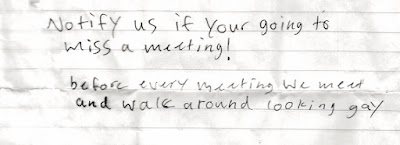 Notify us if your going to
miss a meeting!
before every meeting we meet
and walk around looking gay